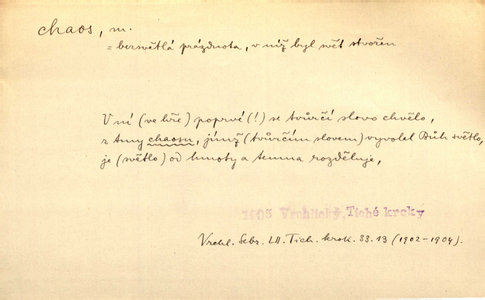 chaos, m.
= bezsvětlá prázdnota, v níž byl svět stvořen
V ní (ve hře) poprvé (!) se tvůrčí slovo chvělo,
z tmy chaosu, jímž (tvůrčím slovem) vyvolal Bůh světlo,
je (světlo) od hmoty a temna rozděluje,
1903 Vrchlický, Tiché kroky
Vrchl. Sebr. LII. Tich. krok. 33.13 (1902-1904).